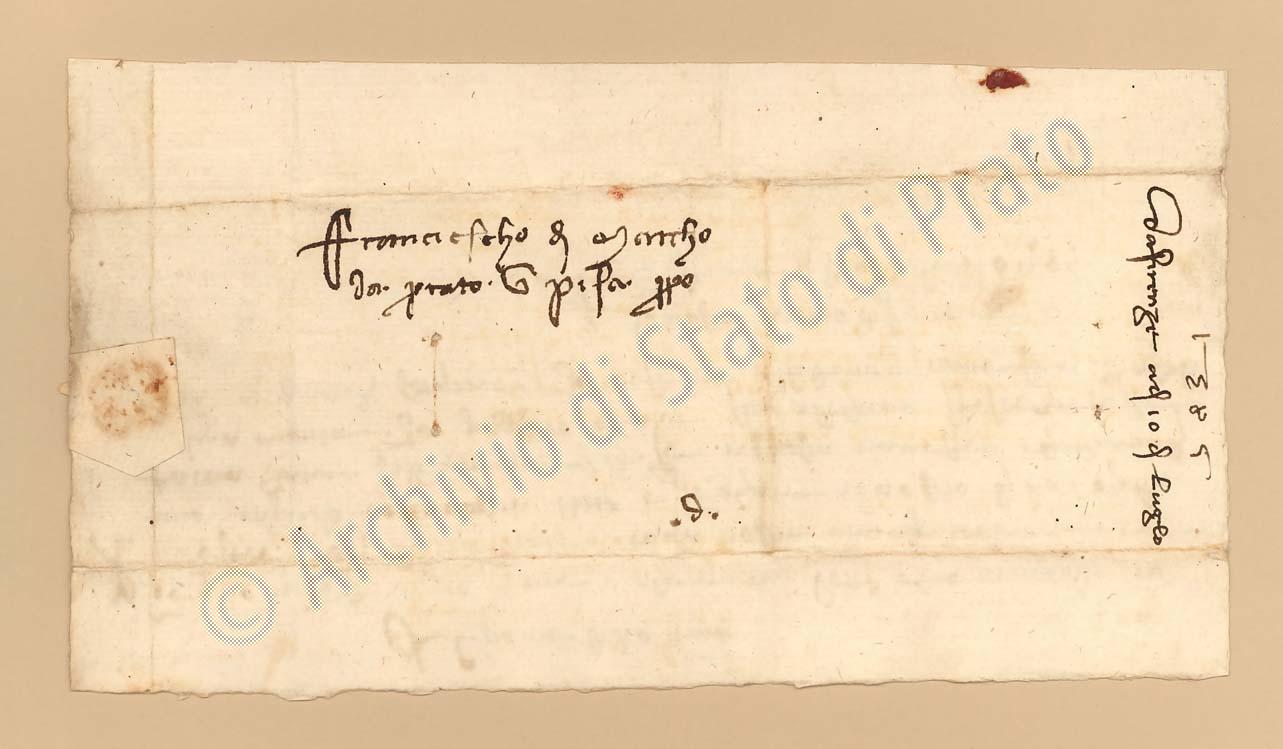 Franciescho di Marcho
da prato. in pisa. propio
.d.
Da firenze a dì 10 di luglo
1385
© Archivio di Stato di Prato